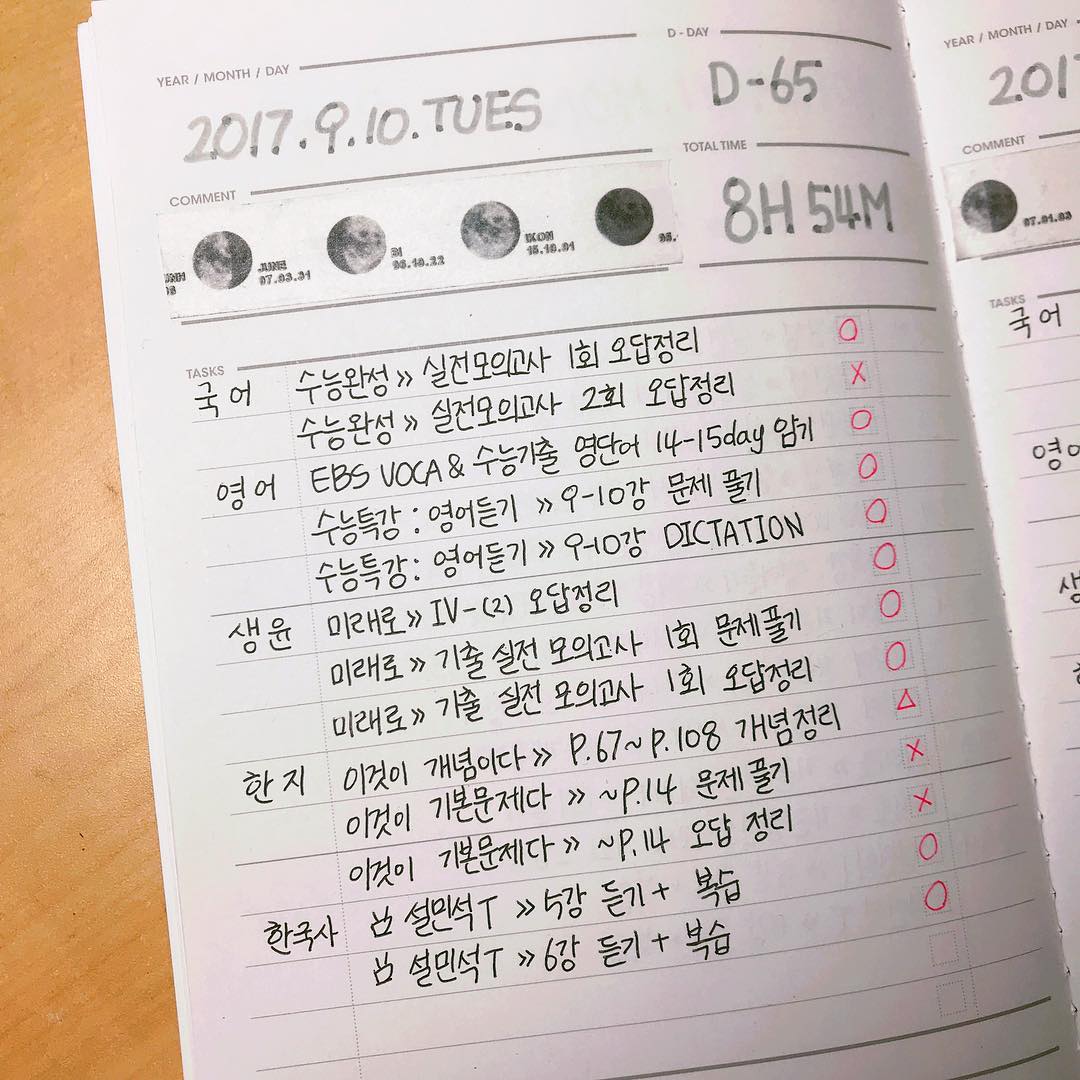 YEAR / MONTH / DAY
2017.9.10.TUES
D-DAY
D-65
TOTAL TIME
8H 54M
COMMENT
JUNE
97.03.31
BI
96.10.22
IKON
15.10.01
TASKS
국어 수능완성 » 실전모의고사 1회 오답정리 O
수능완성 » 실전모의고사 2회 오답정리 X
영어 EBS VOCA & 수능기출 영단어 14-15day 암기 O
수능특강 : 영어듣기 » 9-10강 문제 풀기 O
수능특강 : 영어듣기 » 9-10강 DICTATION O
생윤 미래로 » IV-(2) 오답정리 O
미래로 » 기출 실전 모의고사 1회 문제풀기 O
미래로 » 기출 실전 모의고사 1회 오답정리 O
한지 이것이 개념이다 » P.67~P.108 개념정리 △
이것이 기본문제다 » ~P.14 문제 풀기 X
이것이 기본문제다 » ~P.14 오답 정리 X
한국사 설민석T » 5강 듣기 + 복습 O
설민석T » 6강 듣기 + 복습 O
YEAR / MONTH / DAY
201
COMMENT
97.01.03
TASKS
국어